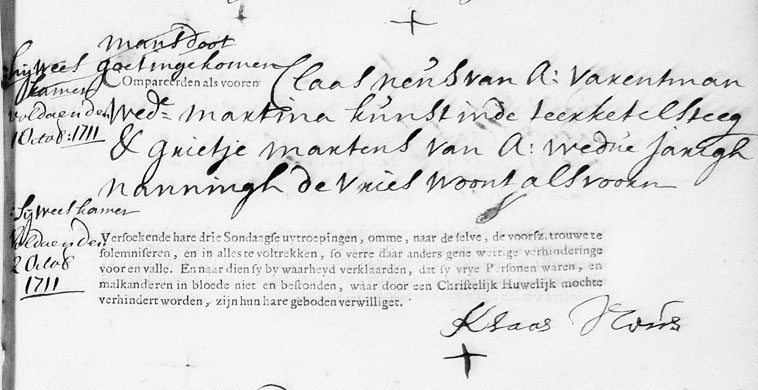 mans doot
goet ingekomen
hij wees
kamer
voldaen den
1 Octob: 1711
Compareerden als vooren Claas neus van A: varentman
wed: martina kunst inde teerketelsteeg
& grietje martens van A: wedue Jarigh
nanningh de vries woont als voorn
: hij weeskamer
Voldaen den
2 Octob
1711
Versoekende hare drie Sondaagse uytroepingen, omme, naar de selve, de voorsz. trouwe te
solemniseren, en in alles te voltrekken, so verre daar anders gene wettige verhinderinge
voor en valle. En naar dien sy by waarheyd verklaarden, dat sy vrye Personen waren, en
malkanderen in bloede niet en bestonden, waar door een Christelijk Huwelijk mochte
verhindert worden, zijn hun hare geboden verwilliget.
Klaas Neus